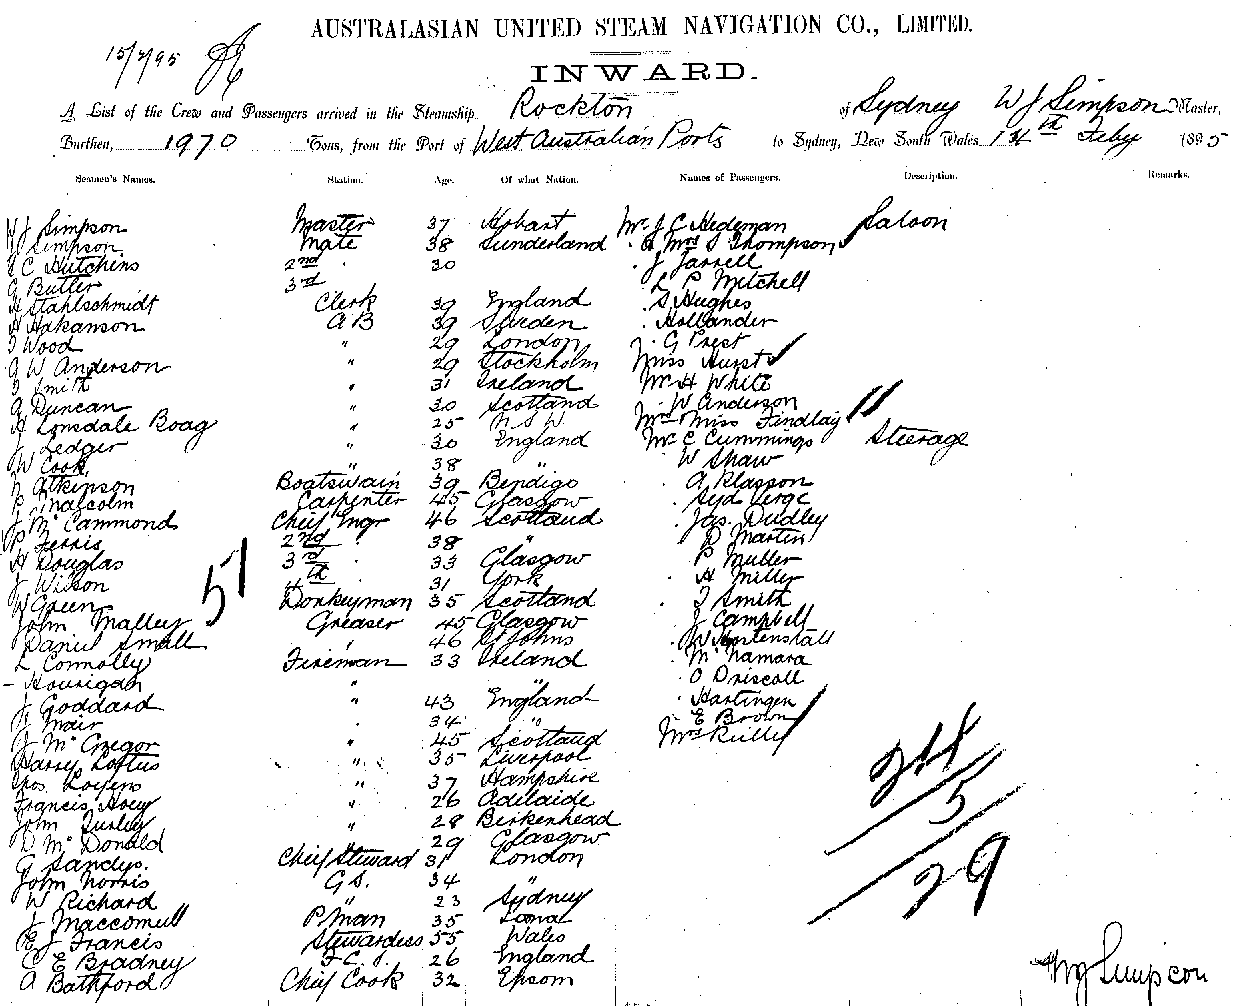 AUSTRALASIAN UNITED STEAM NAVIGATION CO., LIMITED.
15/2/95
INWARD.
A List of the Crew and Passengers arrived in the Steamship Rockton of Sydney W J Simpson Master,
Burthen, 1970 Tons, from the Port of West Australian Ports to Sydney, New South Wales 14th Feby 1895
Seamen's Names. Station. Age. Of what Nation. Names of Passengers. Description. Remarks.
W J Simpson Master 37 Hobart Mr J C Hedeman Saloon
J Simpson Mate 38 Sunderland " Mrs S Thompson
C Hutchins 2nd " 30 " J Jarrell
G Butler 3rd L P Mitchell
H Stahlschmidt Clerk 39 England " S Hughes
A Hakanson A B 39 Sweden " Hollander
J Wood " 29 London " G Prest
A W Anderson " 29 Stockholm Miss Hurst
J Smith " 31 Ireland Mr H White
A Duncan " 30 Scotland " W Anderson
H Lonsdale Boag " 25 N S W Mrs Miss Findlay
J Ledger " 30 England Mr C Cummings Steerage
W Cook " 38 " W Shaw
Atkinson Boatswain 39 Bendigo A Klasson
R Malcolm Carpenter 45 Glasgow Syd Verge
J McCammond Chief Engr 46 Scotland Jas. Dudley
P Ferris 2nd " 38 " D Martin
H Douglas 3rd " 33 Glasgow P Muller
J Wilson 4th " 31 York " H Miller
W Green Donkeyman 35 Scotland " J Smith
John Malley Greaser 45 Glasgow J Campbell
Daniel Small " 46 St Johns W
L Connolly Fireman 33 Ireland " McNamara
- Hourigan " " " O Driscoll
J Goddard " 43 England " Hartingen
Mair " 34 " " E Brown
J McGregor " 45 Scotland Mrs Reilly
Harry Loftus " 35 Liverpool
Jos. " 37 Hampshire
Francis Hoey " 26 Adelaide
John Turley " 28 Birkenhead
D McDonald " 29 Glasgow
G Sandys. Chief Steward 31 London
John Norris G S. 34 "
W Richard " 23 Sydney
J P/man 35 Iona
E J Francis Stewardess 55 Wales
C E Bradney 26 England
A Bathford Chief Cook 32 Epsom
51
24
5
29
W J Simpson